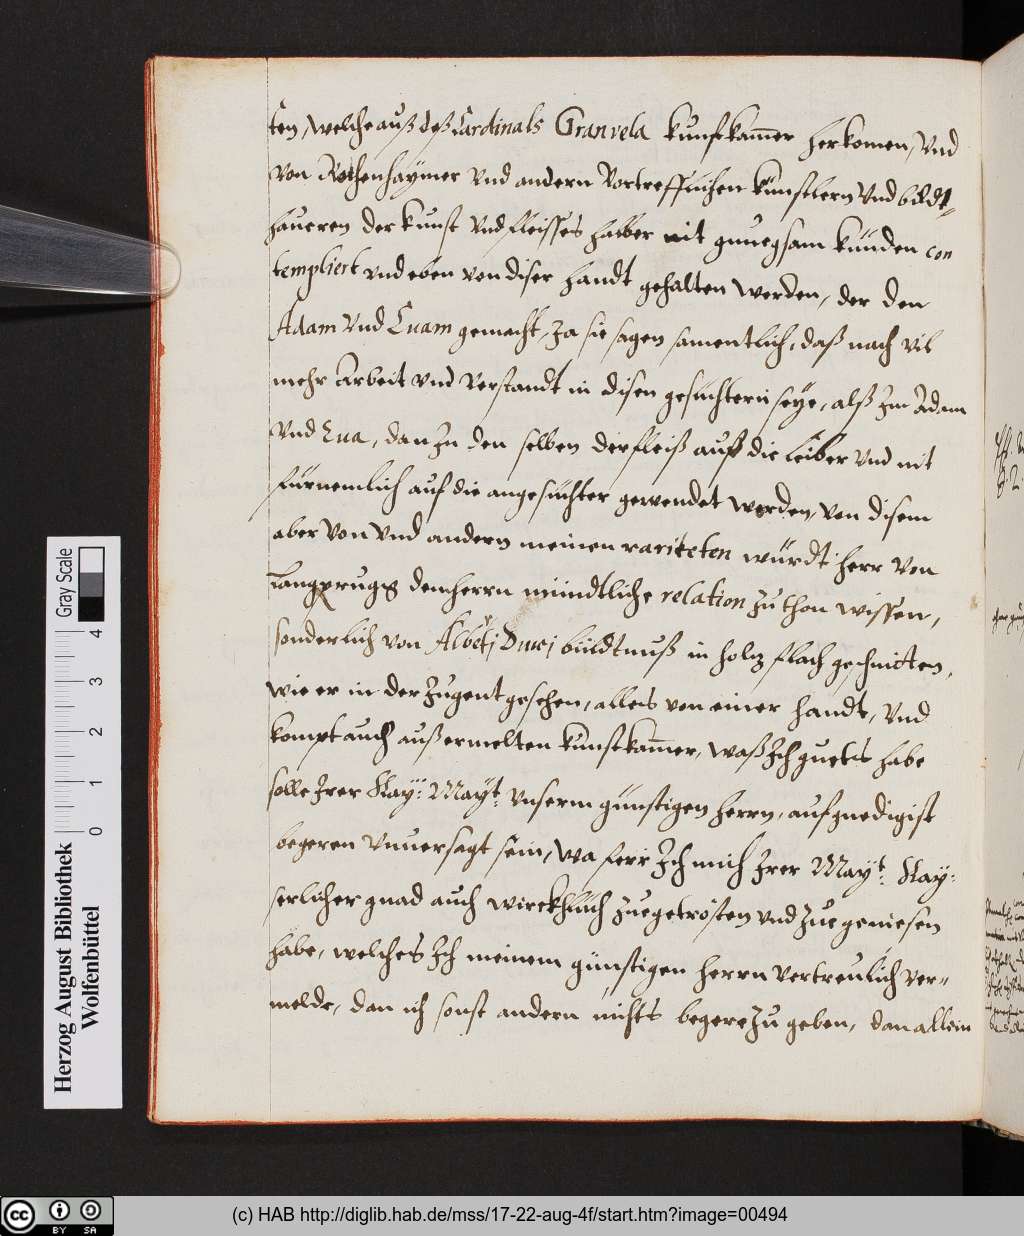 ten, welche auß deß Cardinals Granvela kunstkam̅er herkomen, Vnd
von Rothenhaymer Vnd andern Vortrefflichen künstlern Vnd bildt-
haueren der kunst Vnd fleisses halber nit gnuegsam künden con
templiert vnd eben von diser handt gehalten werden, der den
Adam Vnd Euam gemacht, Ja sie sagen samentlich, daß nach vil
mehr Arbeit vnd Verstandt in disen gesichtern seÿe, alß Im Adam
Vnd Eua, dan In den selben der fleiß auff die Leiber Vnd nit
fürnemlich auf die angesichter gewendet worden, von disem
aber Von Vnd andern meinen rariteten würdt herr Von
Langprugg dem herrn mündtliche relation zu thon wissen,
sonderlich von Alberti Dureri bildtnuß in holtz flach geschnitten,
wie er in der Jugent gesehen, alles von einer handt, Vnd
kompt auch auß ermelten kunstkam̅er, waß Ich guets habe
solle Irer Kaÿ: Maÿt: Vnserm günstigen herrn, auf gnedigist
begeren Vnuersagt sein, wa ferr Ich mich Irer Maÿt: Kaÿ:
serlicher gnad auch wirckhlich zue getrösten vnd zue geniesen
habe, welches Ich meinem günstigen herrn vertreulich ver-
melde, dan ich sonst andern nichts begere zu geben, dan allein
Herzog August Bibliothek
Wolfenbüttel
0 1 2 3 4
Gray Scale
cc BY SA
(c) HAB http://diglib.hab.de/mss/17-22-aug-4f/start.htm?image=00494